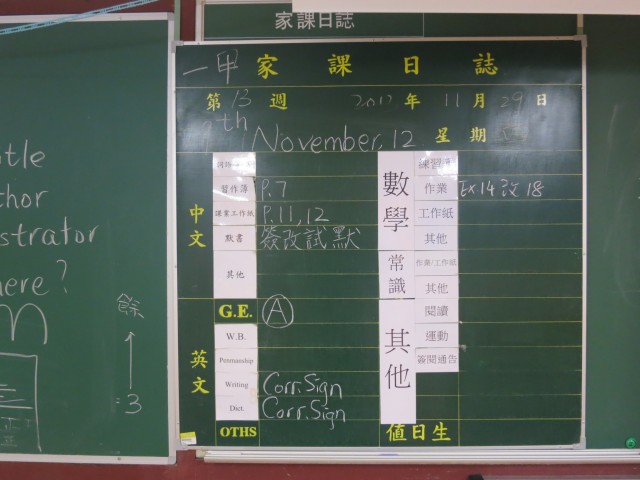 家課日誌
一甲 家課日誌
第 13 週 2012 年 11 月 29 日
th November, 12 星期
中文
習作簿 P.7
課業工作紙 P.11, 12
默書 簽改試默
其他
英文
G.E. A
W.B.
Penmanship
Writing Corr. Sign
Dict. Corr. Sign
OTHS
數學
練習簿
作業 Ex14 改 18
工作紙
其他
常識
作業/工作紙
其他
其他
閱讀
運動
簽閱通告
值日生
strator
here?
餘
=3